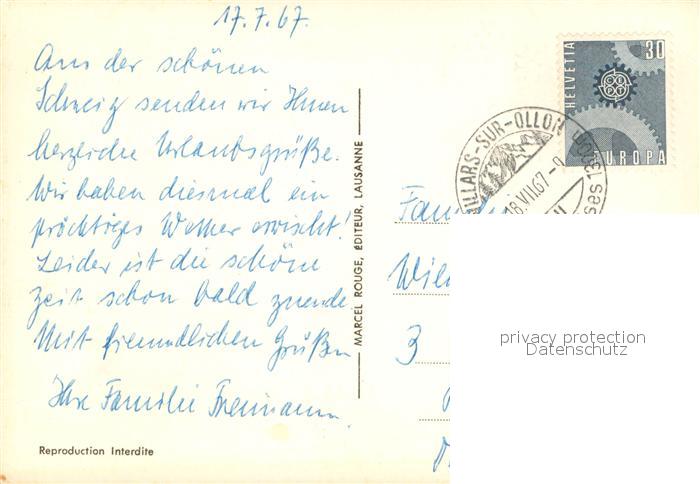 17.7.67.
Aus der schönen
Schweiz senden wir Ihnen
herzliche Urlaubsgrüße.
Wir haben diesmal ein
prächtiges Wetter erwischt!
Leider ist die schöne
Zeit schon bald zuende
Mit freundlichen Grüßen
Ihre Familie
Reproduction Interdite
MARCEL ROUGE, ÉDITEUR, LAUSANNE
HELVETIA
30
EUROPA
VILLARS-SUR-OLLON
18.VII.67-9
1300m
3
privacy protection
Datenschutz